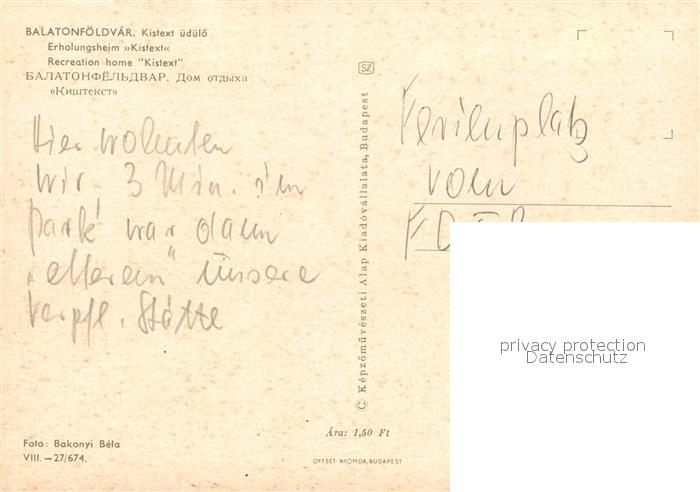 BALATONFÖLDVÁR. Kistext üdülő
Erholungsheim »Kistext«
Recreation home "Kistext"
БАЛАТОНФЁЛЬДВАР. Дом отдыха
«Киштекст»
Hier wohnten
wir 3 Min. im
Park war dann
Unsere
Verpfl. Stätte
Ferienplatz
vom
FDGB
SZ
© Képzőművészeti Alap Kiadóvállalata, Budapest
privacy protection
Datenschutz
Ára: 1,50 Ft
Foto: Bakonyi Béla
VIII. — 27/674.
OFFSET-NYOMDA, BUDAPEST